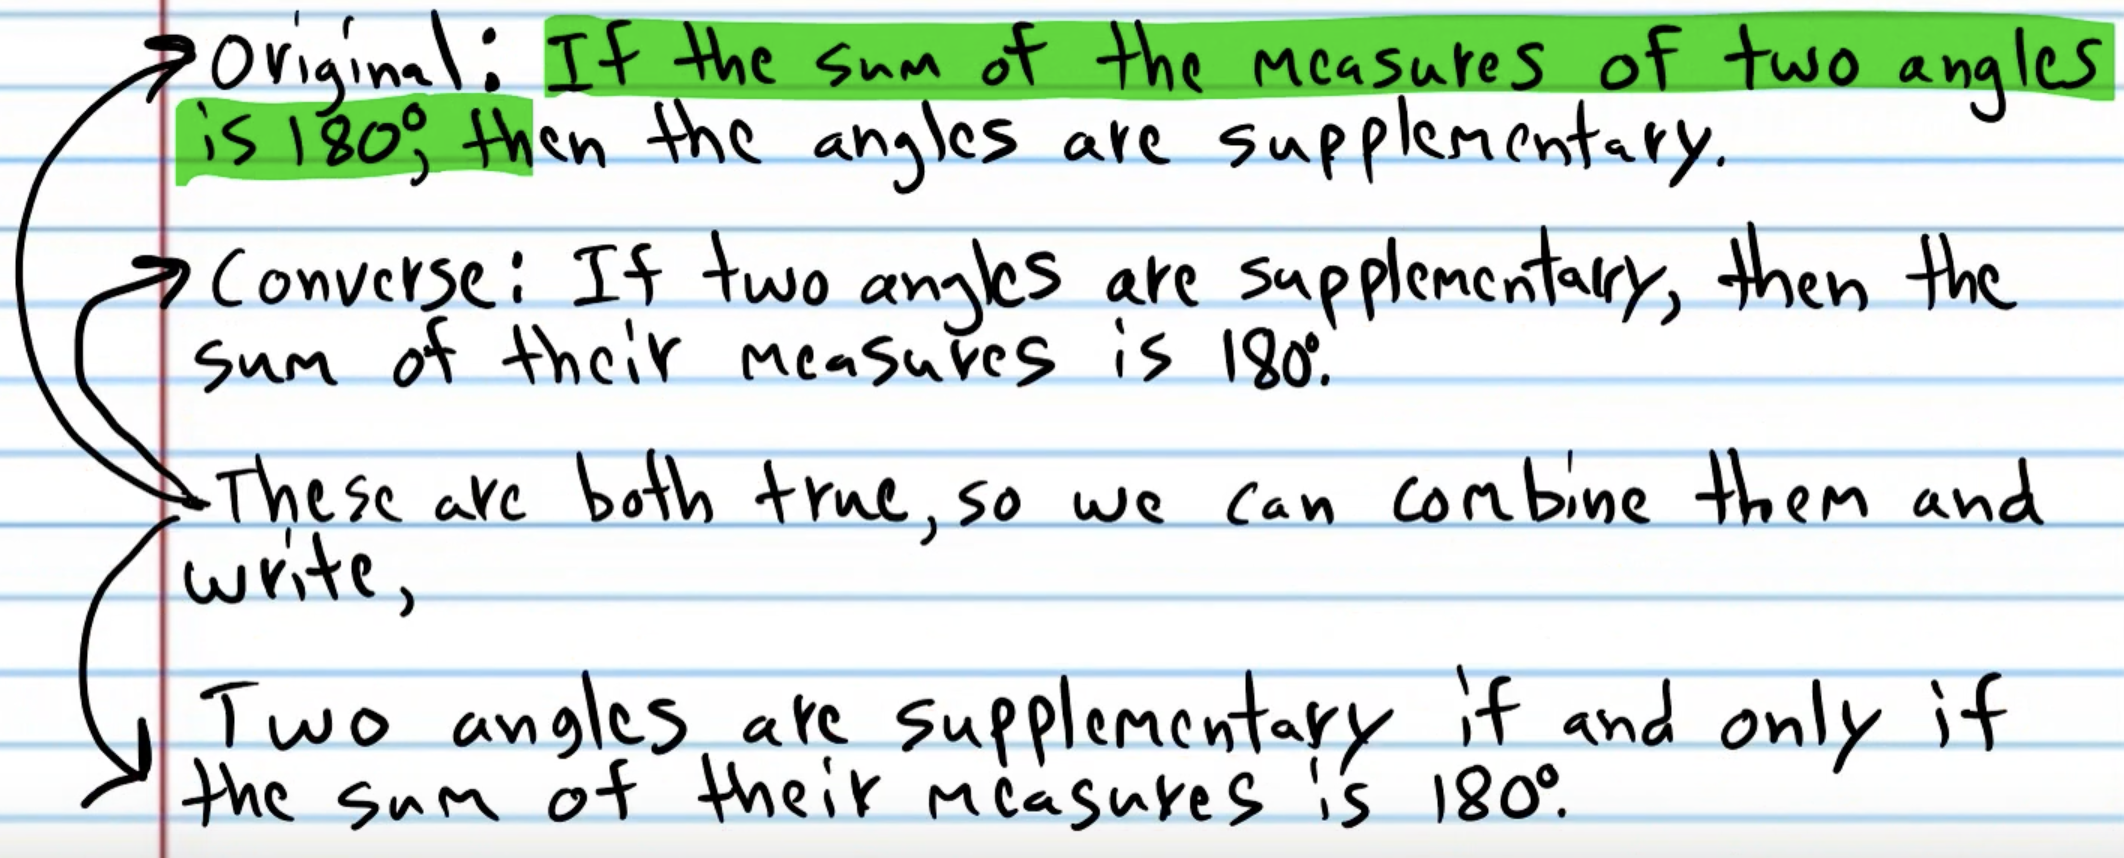 Original: If the sum of the measures of two angles
is 180°, then the angles are supplementary.
Converse: If two angles are supplementary, then the
sum of their measures is 180°.
These are both true, so we can combine them and
write,
Two angles are supplementary if and only if
the sum of their measures is 180°.